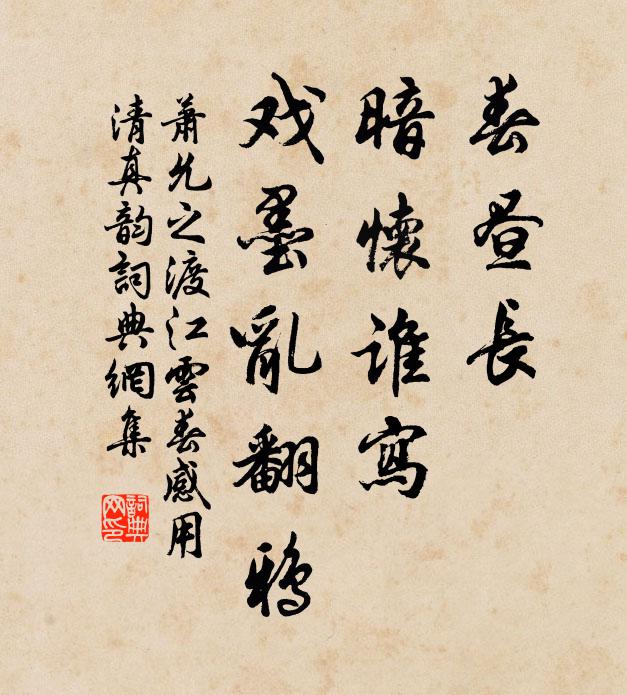 春昼長
暗懷谁寫
戏墨亂翻鸦
萧允之渡江雲春感用
清真韵詞典網集
詞典网印